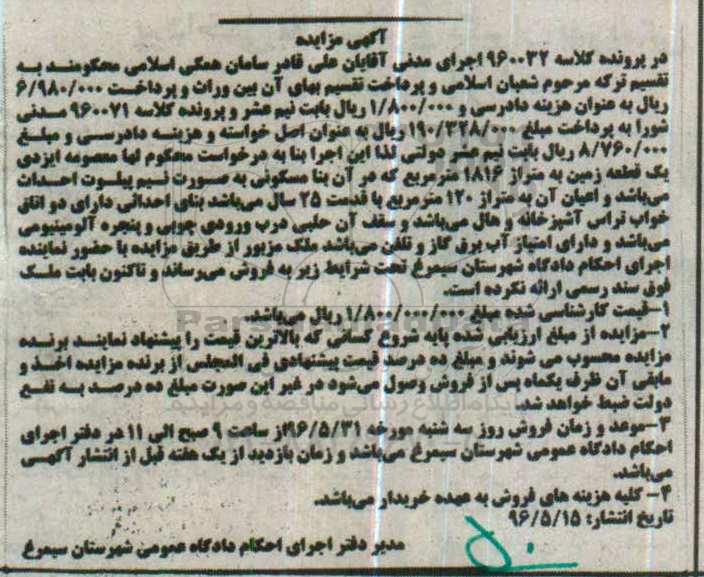 آگهی مزایده
در پرونده کلاسه ۹۶۰۰۳۲ اجرای مدنی آقایان علی قادر سامان همگی اسلامی محکومند به
تقسیم ترکه مرحوم شعبان اسلامی و پرداخت تقسیم بهای آن بین وراث و پرداخت ۶/۹۸۰/۰۰۰
ریال به عنوان هزینه دادرسی و ۱/۸۰۰/۰۰۰ ریال بابت نیم عشر و پرونده کلاسه ۹۶۰۰۷۱ مدنی
شورا به پرداخت مبلغ ۱۹۰/۳۲۸/۰۰۰ ریال به عنوان اصل خواسته و هزینه دادرسی و مبلغ
۸/۷۶۰/۰۰۰ ریال بابت نیم عشر دولتی لذا این اجرا بنا به درخواست محکوم لها معصومه ایزدی
یک قطعه زمین به متراژ ۱۸۱۶ مترمربع که در آن بنا مسکونی به صورت نیم پیلوت احداث
می‌باشد و اعیان آن به متراژ ۱۲۰ مترمربع با قدمت ۲۵ سال می‌باشد بنای احداثی دارای دو اتاق
خواب تراس آشپزخانه و هال می‌باشد و سقف آن حلبی درب ورودی چوبی و پنجره آلومینیومی
می‌باشد و دارای امتیاز آب برق گاز و تلفن می‌باشد ملک مزبور از طریق مزایده با حضور نماینده
اجرای احکام دادگاه شهرستان سیمرغ تحت شرایط زیر به فروش می‌رساند و تاکنون بابت ملک
فوق سند رسمی ارائه نکرده است.
۱-قیمت کارشناسی شده مبلغ ۱/۸۰۰/۰۰۰/۰۰۰ ریال می‌باشد.
۲-مزایده از مبلغ ارزیابی شده پایه شروع کسانی که بالاترین قیمت را پیشنهاد نمایند برنده
مزایده محسوب می شوند و مبلغ ده درصد قیمت پیشنهادی فی المجلس از برنده مزایده اخذ و
مابقی آن ظرف یکماه پس از فروش وصول می‌شود در غیر این صورت مبلغ ده درصد به نفع
دولت ضبط خواهد شد.
۳-موعد و زمان فروش روز سه شنبه مورخه ۹۶/۵/۳۱از ساعت ۹ صبح الی ۱۱ در دفتر اجرای
احکام دادگاه عمومی شهرستان سیمرغ می‌باشد و زمان بازدید از یک هفته قبل از انتشار آگهی
می‌باشد.
۴- کلیه هزینه های فروش به عهده خریدار می‌باشد.
تاریخ انتشار: ۹۶/۵/۱۵
مدیر دفتر اجرای احکام دادگاه عمومی شهرستان سیمرغ